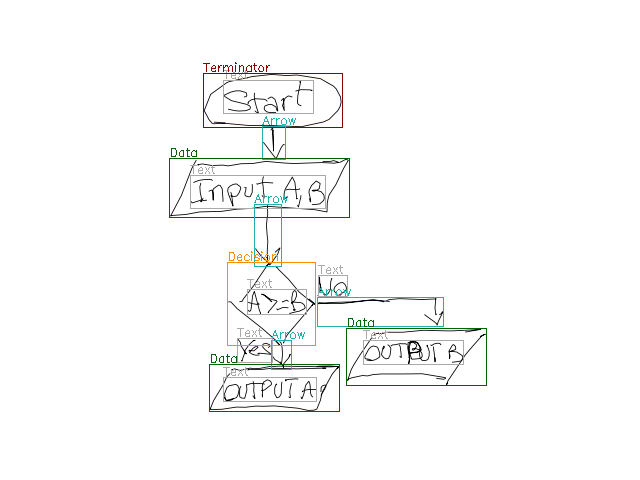 Terminator
Text
Start
Arrow
Data
Text
Input A,B
Arrow
Decision
Text
A>=B
Text
No
Arrow
Text
Yes
Arrow
Data
Text
OUTPUT B
Data
Text
OUTPUT A